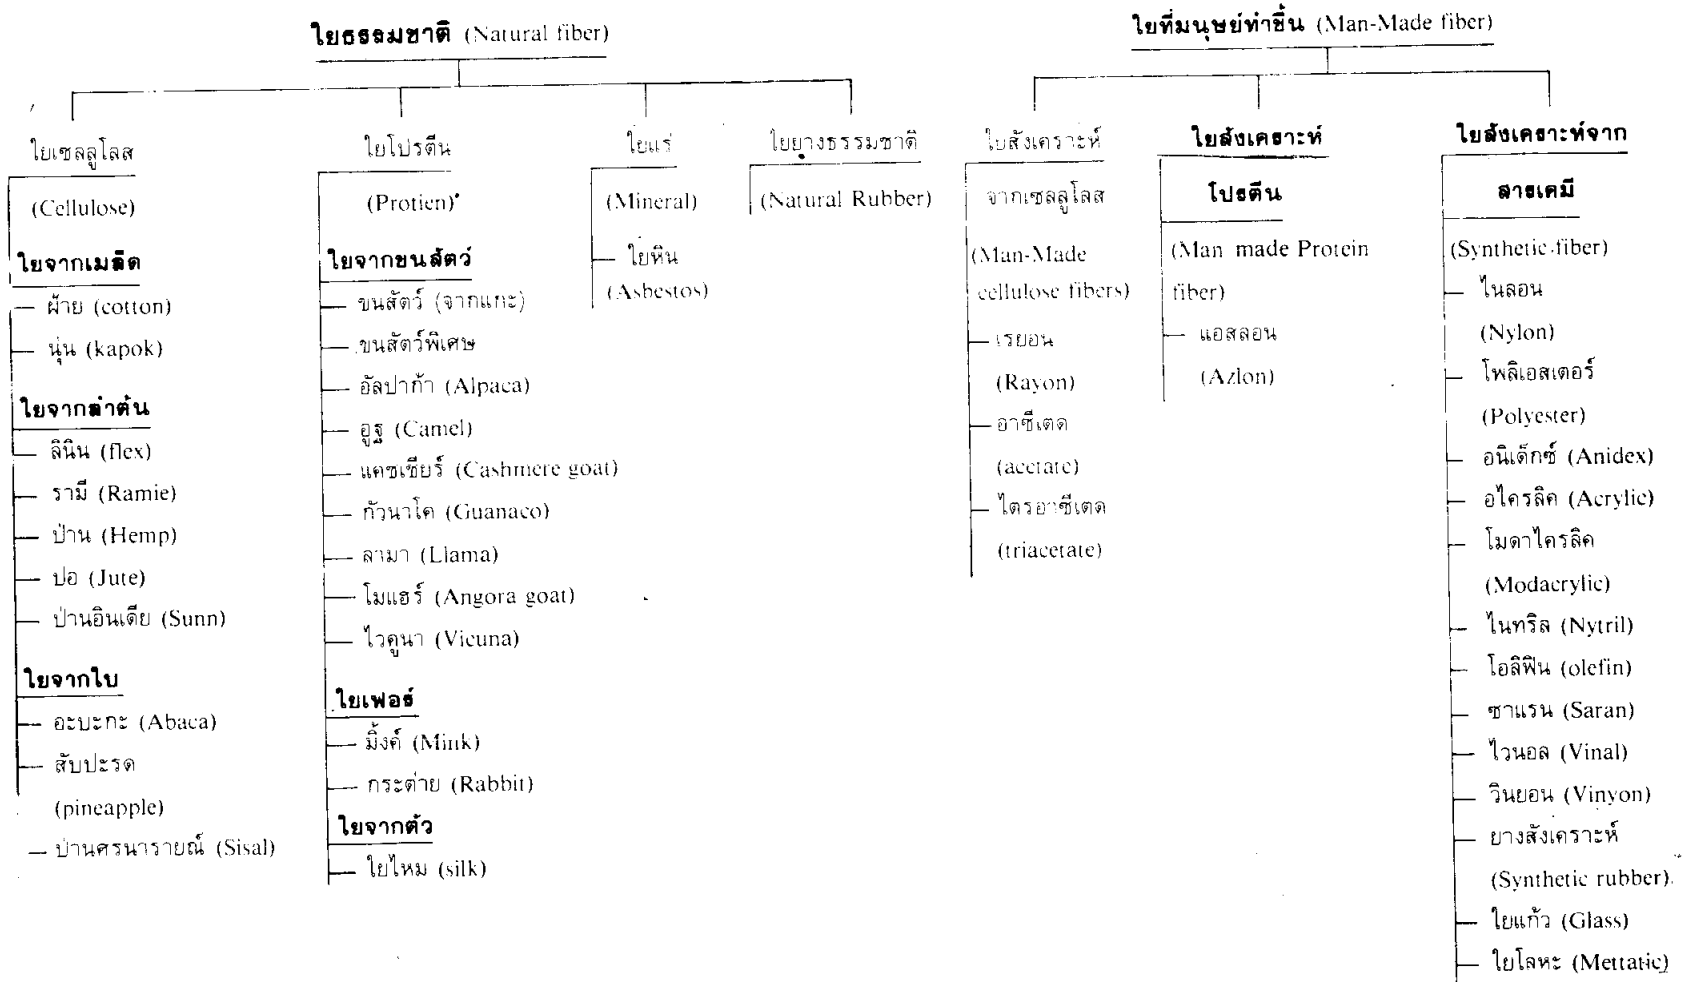 ใยธรรมชาติ (Natural fiber)
ใยเซลลูโลส
(Cellulose)
ใยจากเมล็ด
ฝ้าย (cotton)
นุ่น (kapok)
ใยจากลำต้น
ลินิน (flex)
รามี (Ramie)
ป่าน (Hemp)
ปอ (Jute)
ป่านอินเดีย (Sunn)
ใยจากใบ
อะบะกะ (Abaca)
สับปะรด
(pineapple)
ป่านศรนารายณ์ (Sisal)
ใยโปรตีน
(Protien)
ใยจากขนสัตว์
ขนสัตว์ (จากแกะ)
ขนสัตว์พิเศษ
อัลปาก้า (Alpaca)
อูฐ (Camel)
แคชเชียร์ (Cashmere goat)
กัวนาโค (Guanaco)
ลามา (Llama)
โมแฮร์ (Angora goat)
ไวคูนา (Vicuna)
ใยเฟอร์
มิ้งค์ (Mink)
กระต่าย (Rabbit)
ใยจากตัว
ใยไหม (silk)
ใยแร่
(Mineral)
ใยหิน
(Asbestos)
ใยยางธรรมชาติ
(Natural Rubber)
ใยที่มนุษย์ทำขึ้น (Man-Made fiber)
ใยสังเคราะห์
จากเซลลูโลส
(Man-Made
cellulose fibers)
เรยอน
(Rayon)
อาซีเตด
(acetate)
ไตรอาซีเตด
(triacetate)
ใยสังเคราะห์
โปรตีน
(Man made Protein
fiber)
แอสลอน
(Azlon)
ใยสังเคราะห์จาก
สารเคมี
(Synthetic fiber)
ไนลอน
(Nylon)
โพลิเอสเตอร์
(Polyester)
อนิเด็กซ์ (Anidex)
อไครลิค (Acrylic)
โมดาไครลิค
(Modacrylic)
ไนทริล (Nytril)
โอลิฟิน (olefin)
ซาแรน (Saran)
ไวนอล (Vinal)
วินยอน (Vinyon)
ยางสังเคราะห์
(Synthetic rubber)
ใยแก้ว (Glass)
ใยโลหะ (Mettatic)